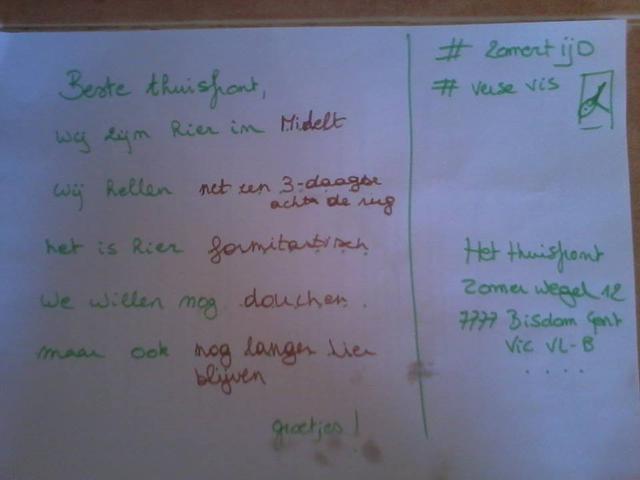 Beste thuisfront,
wij zijn hier in Midelt
wij hebben net een 3-daagse
achter de rug
het is hier formitastisch
we willen nog douchen.
maar ook nog langer hier
blijven
groetjes!
# zomertijD
# verse vis
Het thuisfront
Zomerwegel 12
7777 Bisdom Gent
Vic VL-B
....